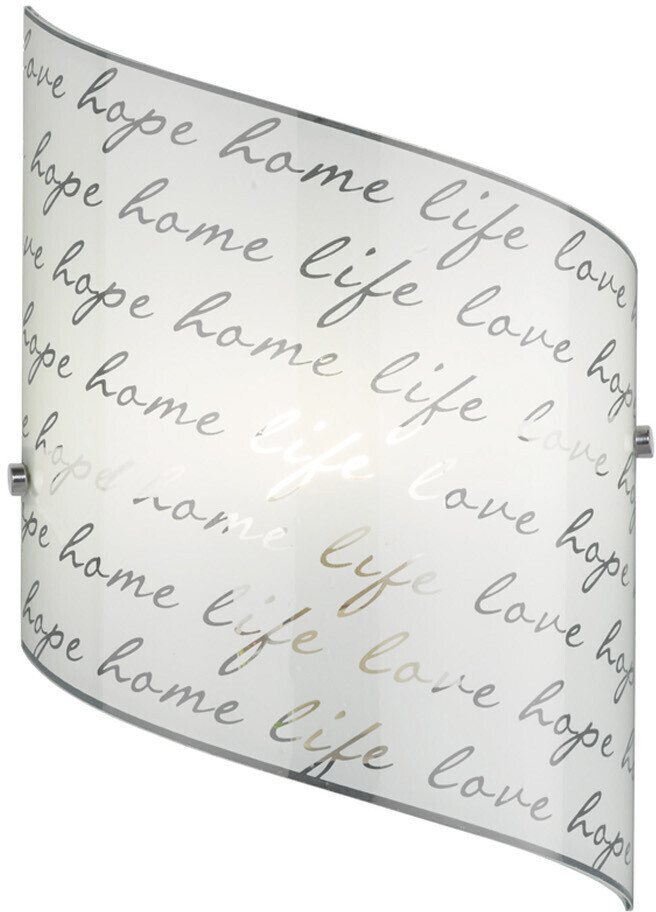 love hope home life love
hope home life love hope
hope home life love hope
hope home life love hope
hope home life love hope
home life love hope
hope home life love hope